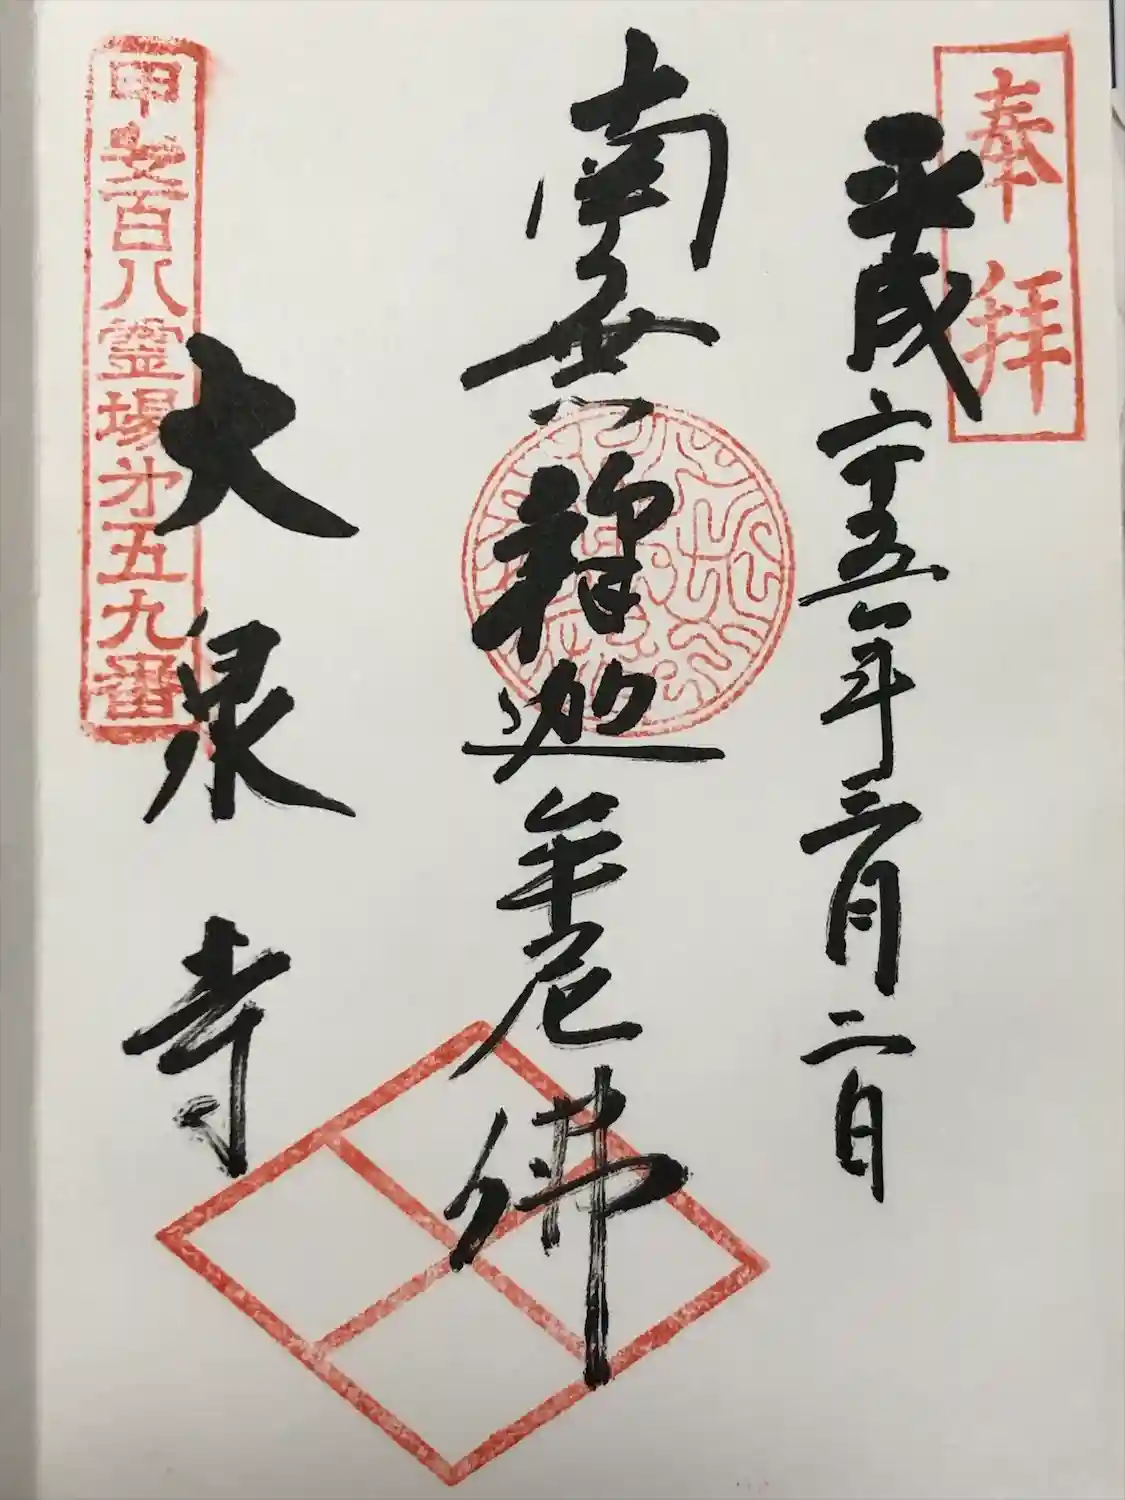 奉拝
平成二十五年三月二日
南無釋迦牟尼佛
甲斐百八靈場㐧五九番
大泉寺